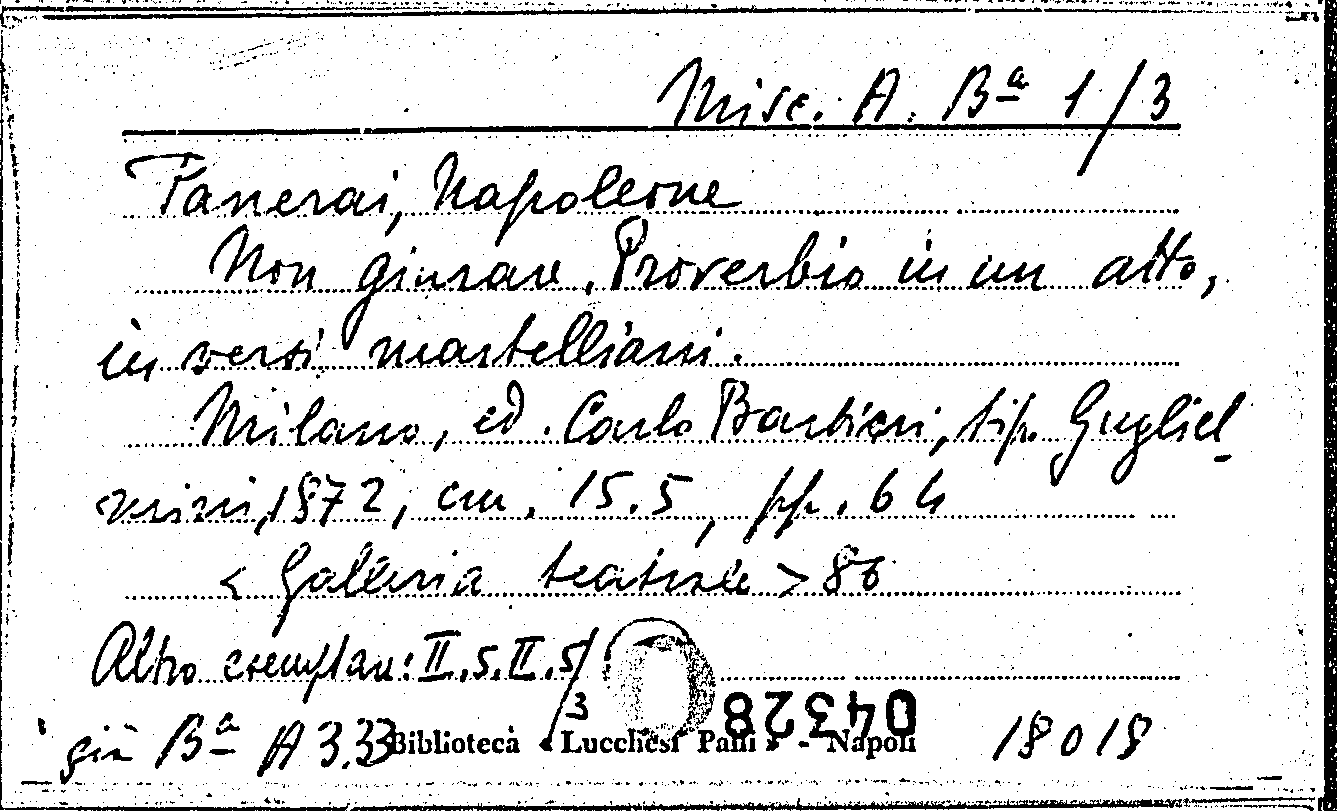 Misc. A. Bª 1/3
Panerai, Napoleone
Non giurare. Proverbio in un atto,
in versi martelliani.
Milano, ed. Carlo Barbieri, tip. Gugliel-
mini, 1872, cm. 15.5, pp. 64
< Galleria teatrale > 86
Altro esemplare: II.5.II.5/3
04328
già Bª A 3.33
Biblioteca « Lucchesi Palli » - Napoli
18018